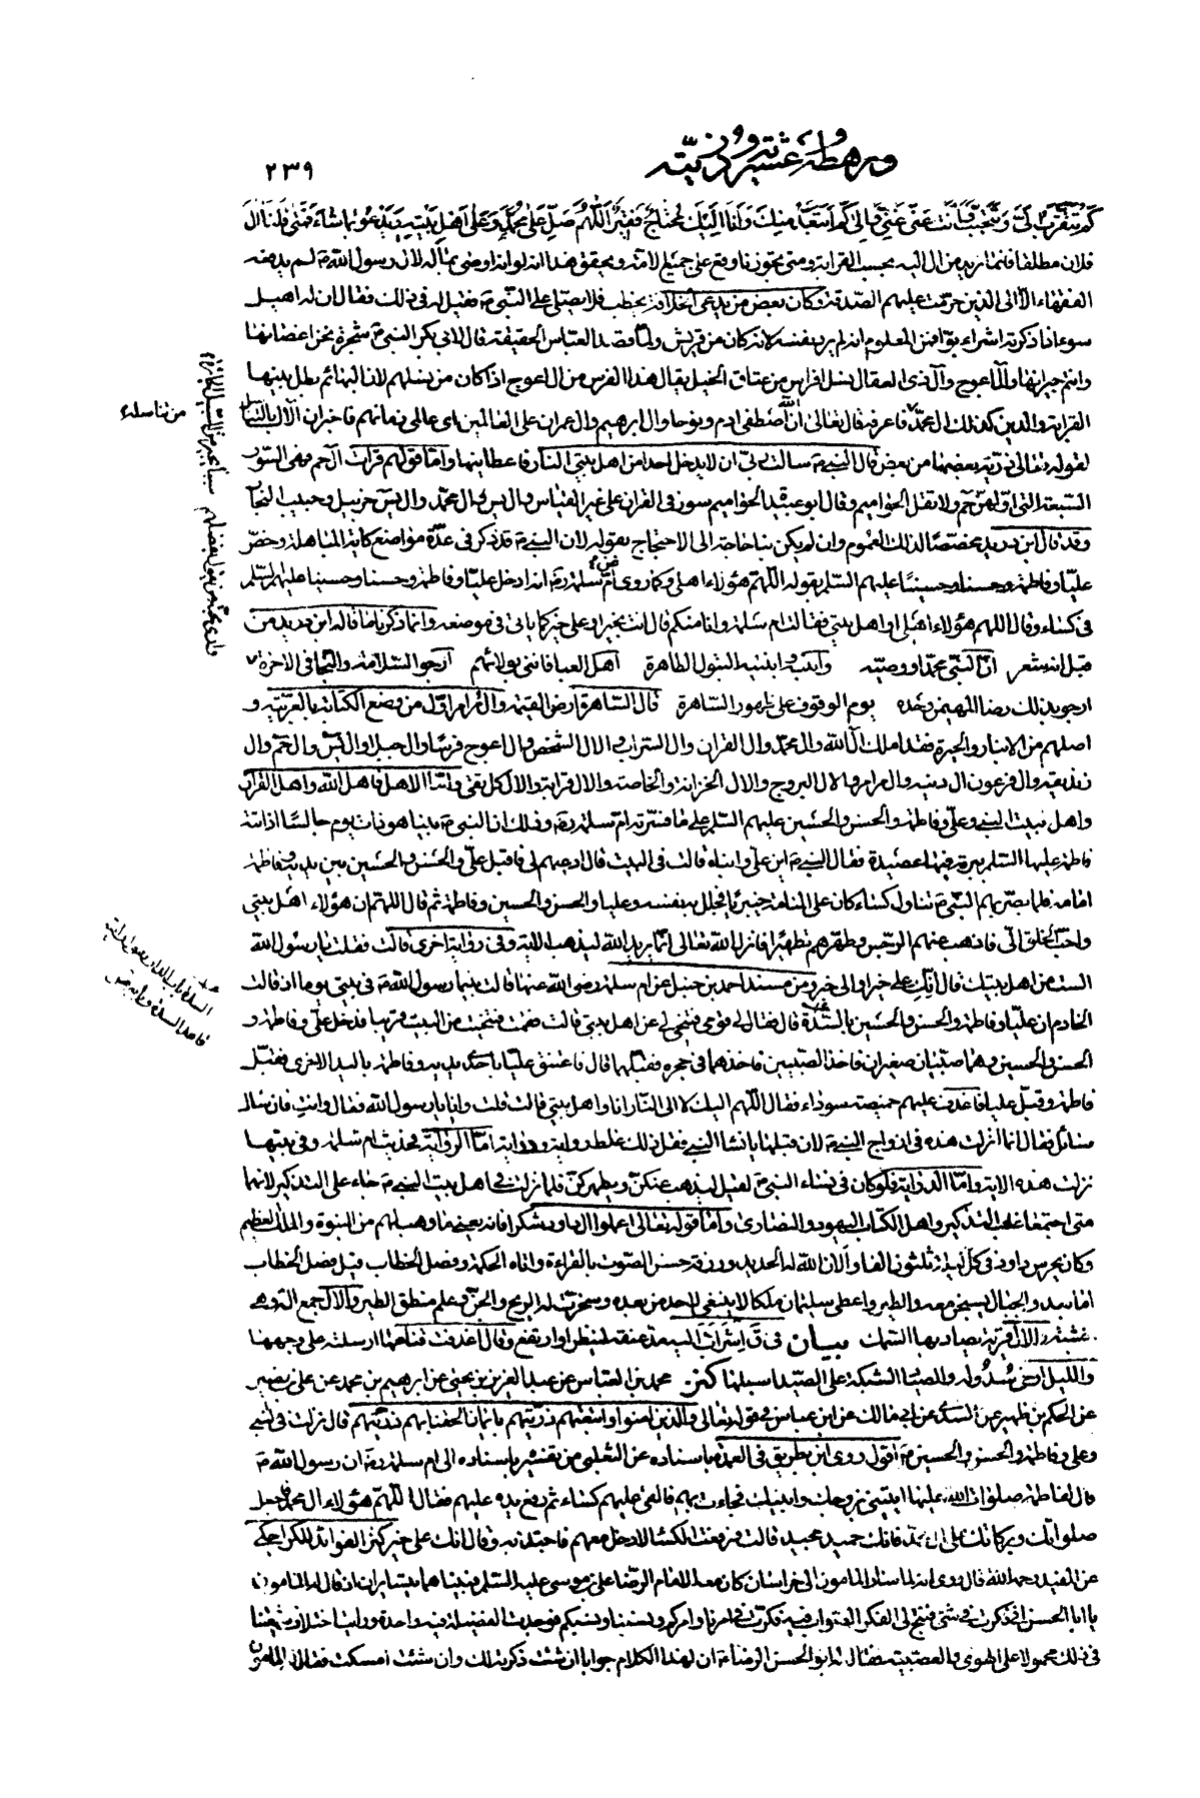 ورهطه وعشيرته وذريته
٢٣٩
كم تتقرب إلي وتتحبب فأنت عني غني فيالى كم أتبعد منك وأنا إليك محتاج فقير اللهم صل على محمد وعلى أهل بيته ويدعو بما شاء فمتى قلنا آل
فلان مطلقا فإنما نريد من آل إليه بحسب القرابة ومتى تجوزنا وقع على جميع الأمة ويحقق هذا أنه لو أوصى بماله لآل رسول الله ص لم يدفعه
الفقهاء إلا إلى الذين حرمت عليهم الصدقة وكان بعض من يدعي الخلافة يخطب فلا يصلي على النبي ص فقيل له في ذلك فقال إن له أهيل
سوء إذا ذكرته اشرأبوا فمن المعلوم أنه لم يرد نفسه لأنه كان من قريش ولما قصد العباس الحقيقة قال لأبي بكر النبي ص شجرة نحن أغصانها
وأنتم جيرانها وآل أعوج وآل ذي العقال نسل أفراس من عتاق الخيل يقال هذا الفرس من آل أعوج إذا كان من نسلهم لأن البهائم بطل بينها
القرابة والدين كذلك آل محمد فاعرفه قال تعالى إن الله اصطفى آدم ونوحا وآل إبراهيم وآل عمران على العالمين أي عالمي زمانهم فأخبر أن الآل بالتناسل
لقوله تعالى ذرية بعضها من بعض قال النبي ص سألت ربي أن لا يدخل أحدا من أهل بيتي النار فأعطانيها وأما قولهم قرأت آل حم فهي السور
السبعة التي أولهن حم ولا تقل الحواميم وقال أبو عبيد الحواميم سور في القرآن على غير القياس وآل يس آل محمد وآل يس حزبيل وحبيب النجار
وقد قال ابن دريد مخصصا لذلك العموم وإن لم يكن بنا حاجة إلى الاحتجاج بقوله لأن النبي ص قد ذكر في عدة مواضع كآية المباهلة وخص
عليا وفاطمة وحسنا وحسينا عليهم السلم بقوله اللهم هؤلاء أهلي وكما روي أم سلمة رض أنه أدخل عليا وفاطمة وحسنا وحسينا عليهم السلم
في كساء وقال اللهم هؤلاء أهلي أو أهل بيتي فقالت أم سلمة وأنا منكم قال أنت بخير أو على خير كما يأتي في موضعه وإنما ذكرنا ما قاله ابن دريد من
قبل إنه شعر إن النبي محمدا ووصيه وابنيه وابنته البتول الطاهرة أهل العبا فإنني بولائهم أرجو السلامة والنجا في الآخرة
أرجو بذلك رضا المهيمن وحده يوم الوقوف على ظهور الساهرة قال الساهرة أرض القيمة وآل مرامر أول من وضع الكتابة بالعربية و
أصلهم من الأنبار والحيرة فقد أملك آل الله وآل محمد وآل القرآن وآل السراب والآل الشخص وآل أعوج فرسا وآل جبلا وآل يس وآل حم وآل
زنديقه وآل فرعون آل دينه وآل مرامر والآل البروج والآل الحزانة والخاصة والآل قرابة والآل كل تقي وأما الأهل فأهل الله وأهل القرآن
وأهل بيت النبي وعلي وفاطمة والحسن والحسين عليهم السلم على ما فسرته أم سلمة رض وذلك أن النبي ص بينا هو ذات يوم جالسا إذ أتته
فاطمة عليها السلم ببرمة فيها عصيدة فقال النبي ص أين علي وابناه قالت في البيت قال ادعيهم لي فأقبل علي والحسن والحسين بين يديه وفاطمة
أمامه فلما بصر بهم النبي ص تناول كساء كان على المنامة خيبريا فجلل به نفسه وعليا والحسن والحسين وفاطمة ثم قال اللهم إن هؤلاء أهل بيتي
وأحب الخلق إلي فأذهب عنهم الرجس وطهرهم تطهيرا فأنزل الله تعالى إنما يريد الله ليذهب الآية وفي رواية أخرى قالت فقلت يا رسول الله
ألست من أهل بيتك قال إنك على خير أو إلى خير ومن مسند أحمد بن حنبل عن أم سلمة رضي الله عنها قالت بينما رسول الله ص في بيتي يوما إذ قالت
الخادم إن عليا وفاطمة والحسن والحسين بالسدة قال فقال لي قومي فتنحي لي عن أهل بيتي قالت فقمت فتنحيت من البيت قريبا فدخل علي وفاطمة و
الحسن والحسين وهما صبيان صغيران فأخذ الصبيين فأخذهما في حجره فقبلهما قال فاعتنق عليا بإحدى يديه وفاطمة باليد الأخرى فقبل
فاطمة وقبل عليا فأغدف عليهم خميصة سوداء فقال اللهم إليك لا إلى النار أنا وأهل بيتي قالت قلت وأنا يا رسول الله فقال وأنت فإن سأل
سائل فقال إنما أنزلت هذه في أزواج النبي ص لأن قبلها يا نساء النبي فقل ذلك غلط رواية ودراية أما الرواية فحديث أم سلمة وفي بيتها
نزلت هذه الآية وأما الدراية فلو كان في نساء النبي ص لقيل ليذهب عنكن ويطهركن فلما نزلت في أهل بيت النبي ص جاء على التذكير لأنهما
متى اجتمعا غلب التذكير وأهل الكتاب اليهود والنصارى وأما قوله تعالى اعملوا آل داود شكرا فإنه يعني ما وهب لهم من النبوة والملك العظيم
وكان يحرس داود في كل ليلة ثلثون ألفا وألان الله له الحديد ورزقه حسن الصوت بالقراءة وآتاه الحكمة وفصل الخطاب قيل فصل الخطاب
أما بعد والجبال يسبحن معه والطير وأعطى سليمان ملكا لا ينبغي لأحد من بعده وسخرت له الريح والجن وعلم منطق الطير والآل جمع آلة وهي
خشبة والآل قرية يصاد بها السمك بيان في ق اشرأب إليه مد عنقه لينظر أو ارتفع وقال أغدفت قناعها أرسلته على وجهها
والليل أرخى سدوله والصياد الشبكة على الصيد أسبلها كنز محمد بن العباس عن عبد العزيز بن يحيى عن إبراهيم بن محمد عن علي بن نصير
عن الحكم بن ظهير عن السدي عن أبي مالك عن ابن عباس في قوله تعالى والذين آمنوا واتبعتهم ذريتهم بإيمان ألحقنا بهم ذريتهم قال نزلت في النبي
وعلي وفاطمة والحسن والحسين ص أقول روى ابن بطريق في العمدة بإسناده عن الثعلبي من تفسيره بإسناده إلى أم سلمة رض أن رسول الله ص
قال لفاطمة صلوات الله عليها ايتيني بزوجك وابنيك فجاءت بهم فألقى عليهم كساء ثم رفع يده عليهم فقال اللهم هؤلاء آل محمد فاجعل
صلواتك وبركاتك على آل محمد فإنك حميد مجيد قالت فرفعت الكساء لأدخل معهم فاجتذبه وقال إنك على خير كنز الفوائد للكراجكي
عن المفيد رحمه الله قال روي أنه لما سار المأمون إلى خراسان كان معه الإمام الرضا علي بن موسى عليه السلم فبينا هما يتسايران إذ قال له المأمون
يا أبا الحسن إني فكرت في شيء فنتج لي الفكر الصواب فيه فكرت في أمرنا وأمركم ونسبنا ونسبكم فوجدت الفضيلة فيه واحدة ورأيت اختلاف شيعتنا
في ذلك محمولا على الهوى والعصبية فقال له أبو الحسن الرضا ع إن لهذا الكلام جوابا إن شئت ذكرته لك وإن شئت أمسكت فقال له المأمون